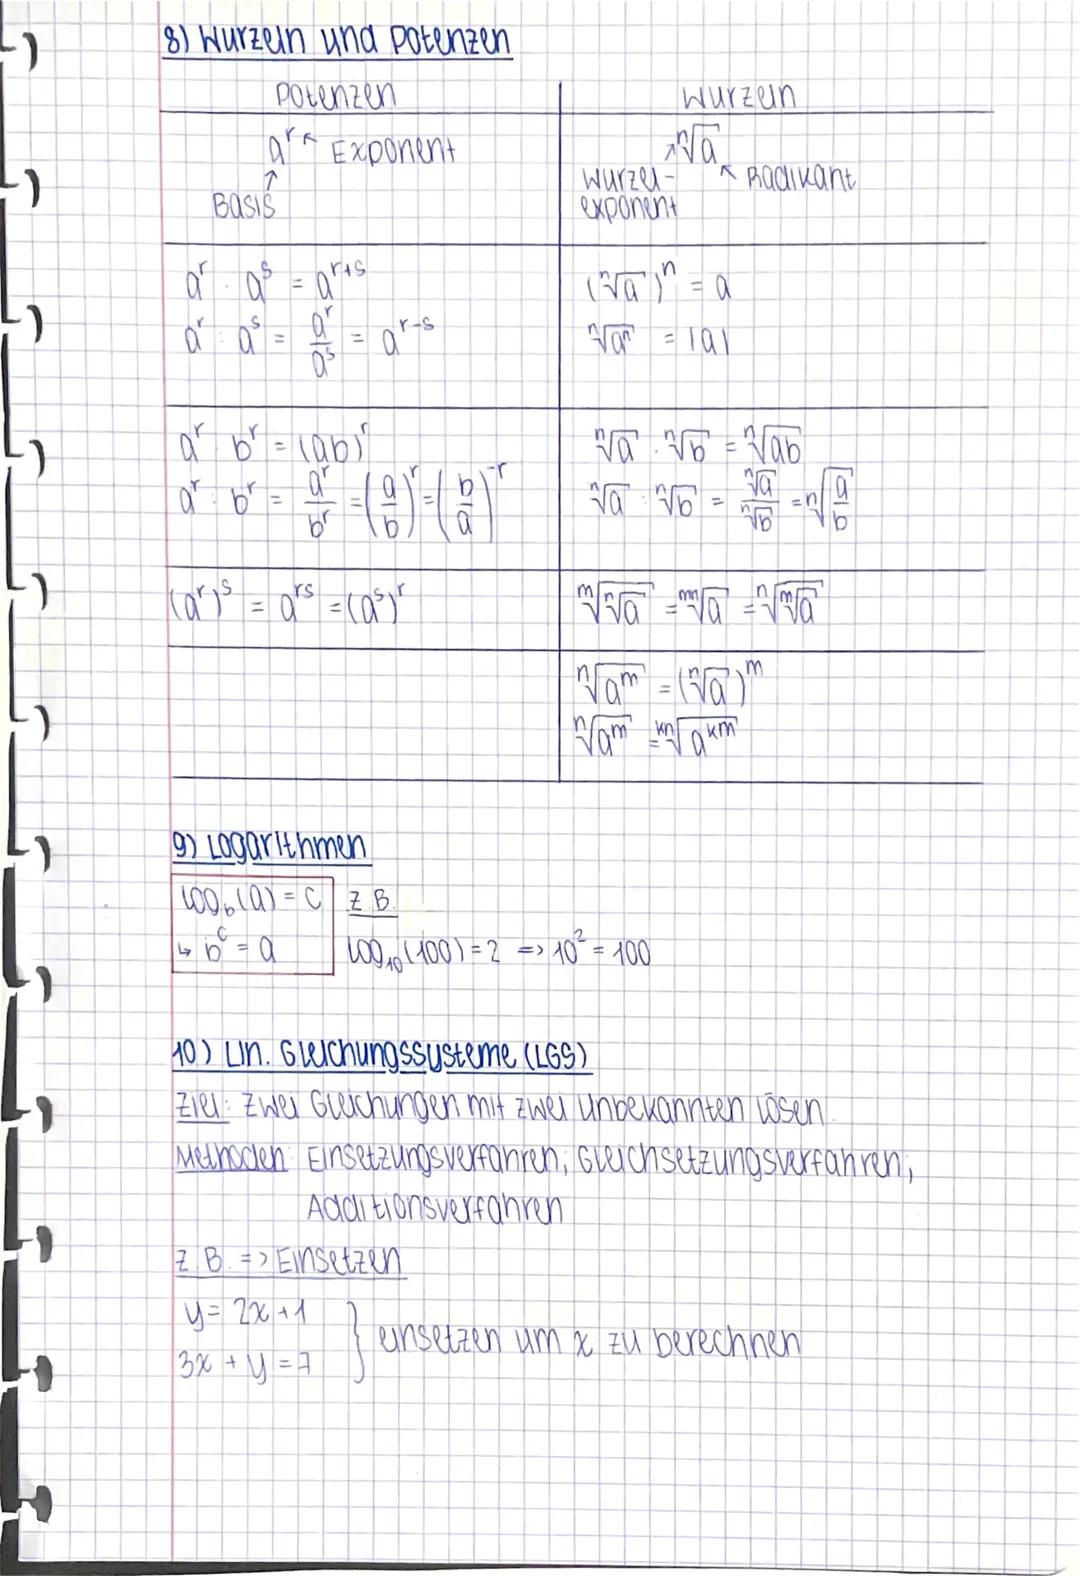 8) Wurzeln und Potenzen
Potenzen
Wurzeln
aʳ Exponent
Basis
ⁿ√a
Wurzel-
exponent
Radikant
aʳ · aˢ = aʳ⁺ˢ
aʳ : aˢ = aʳ/aˢ = aʳ⁻ˢ
(ⁿ√a)ⁿ = a
ⁿ√aⁿ = |a|
aʳ · bʳ = (ab)ʳ
aʳ : bʳ = aʳ/bʳ = (a/b)ʳ = (b/a)⁻ʳ
ⁿ√a · ⁿ√b = ⁿ√ab
ⁿ√a : ⁿ√b = ⁿ√a/ⁿ√b = ⁿ√(a/b)
(aʳ)ˢ = aʳˢ = (aˢ)ʳ
ᵐ√ⁿ√a = ᵐⁿ√a = ⁿ√ᵐ√a
ⁿ√aᵐ = (ⁿ√a)ᵐ
ⁿ√aᵐ = ᵏⁿ√aᵏᵐ
9) Logarithmen
log_b(a) = c
↳ bᶜ = a
z.B.
log₁₀(100) = 2 => 10² = 100
10) Lin. Gleichungssysteme (LGS)
Ziel: Zwei Gleichungen mit zwei Unbekannten lösen.
Methoden: Einsetzungsverfahren, Gleichsetzungsverfahren,
Additionsverfahren
z.B. => Einsetzen
y = 2x + 1
3x + y = 7
} einsetzen um x zu berechnen